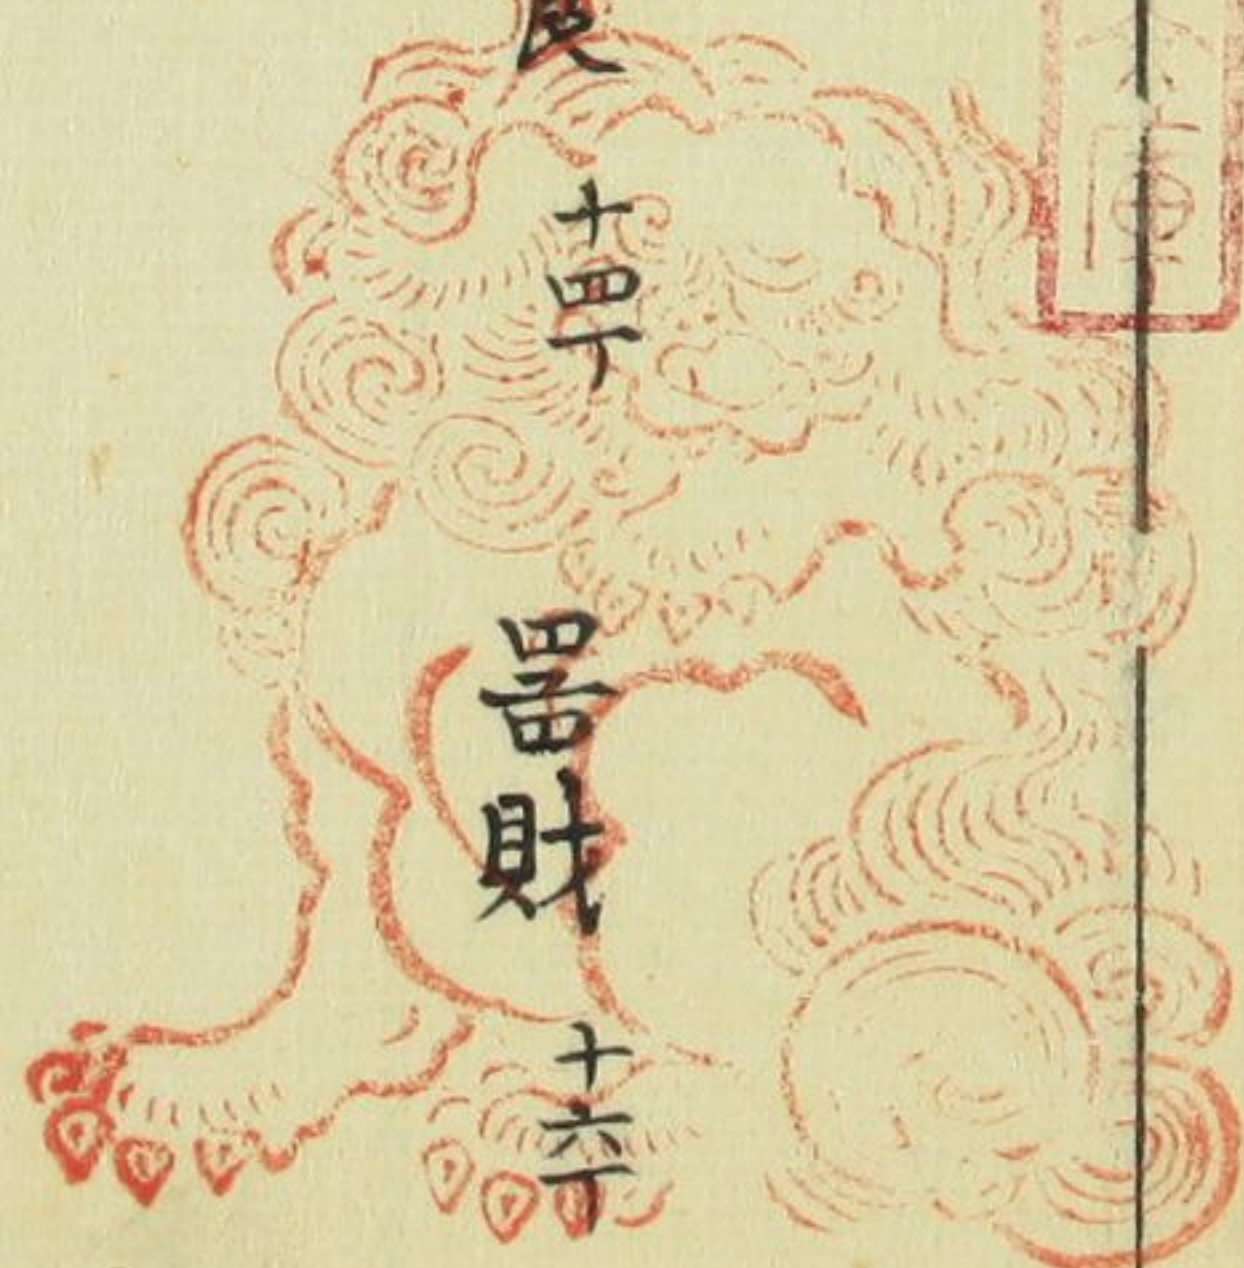 十四丁
噐財
十六丁